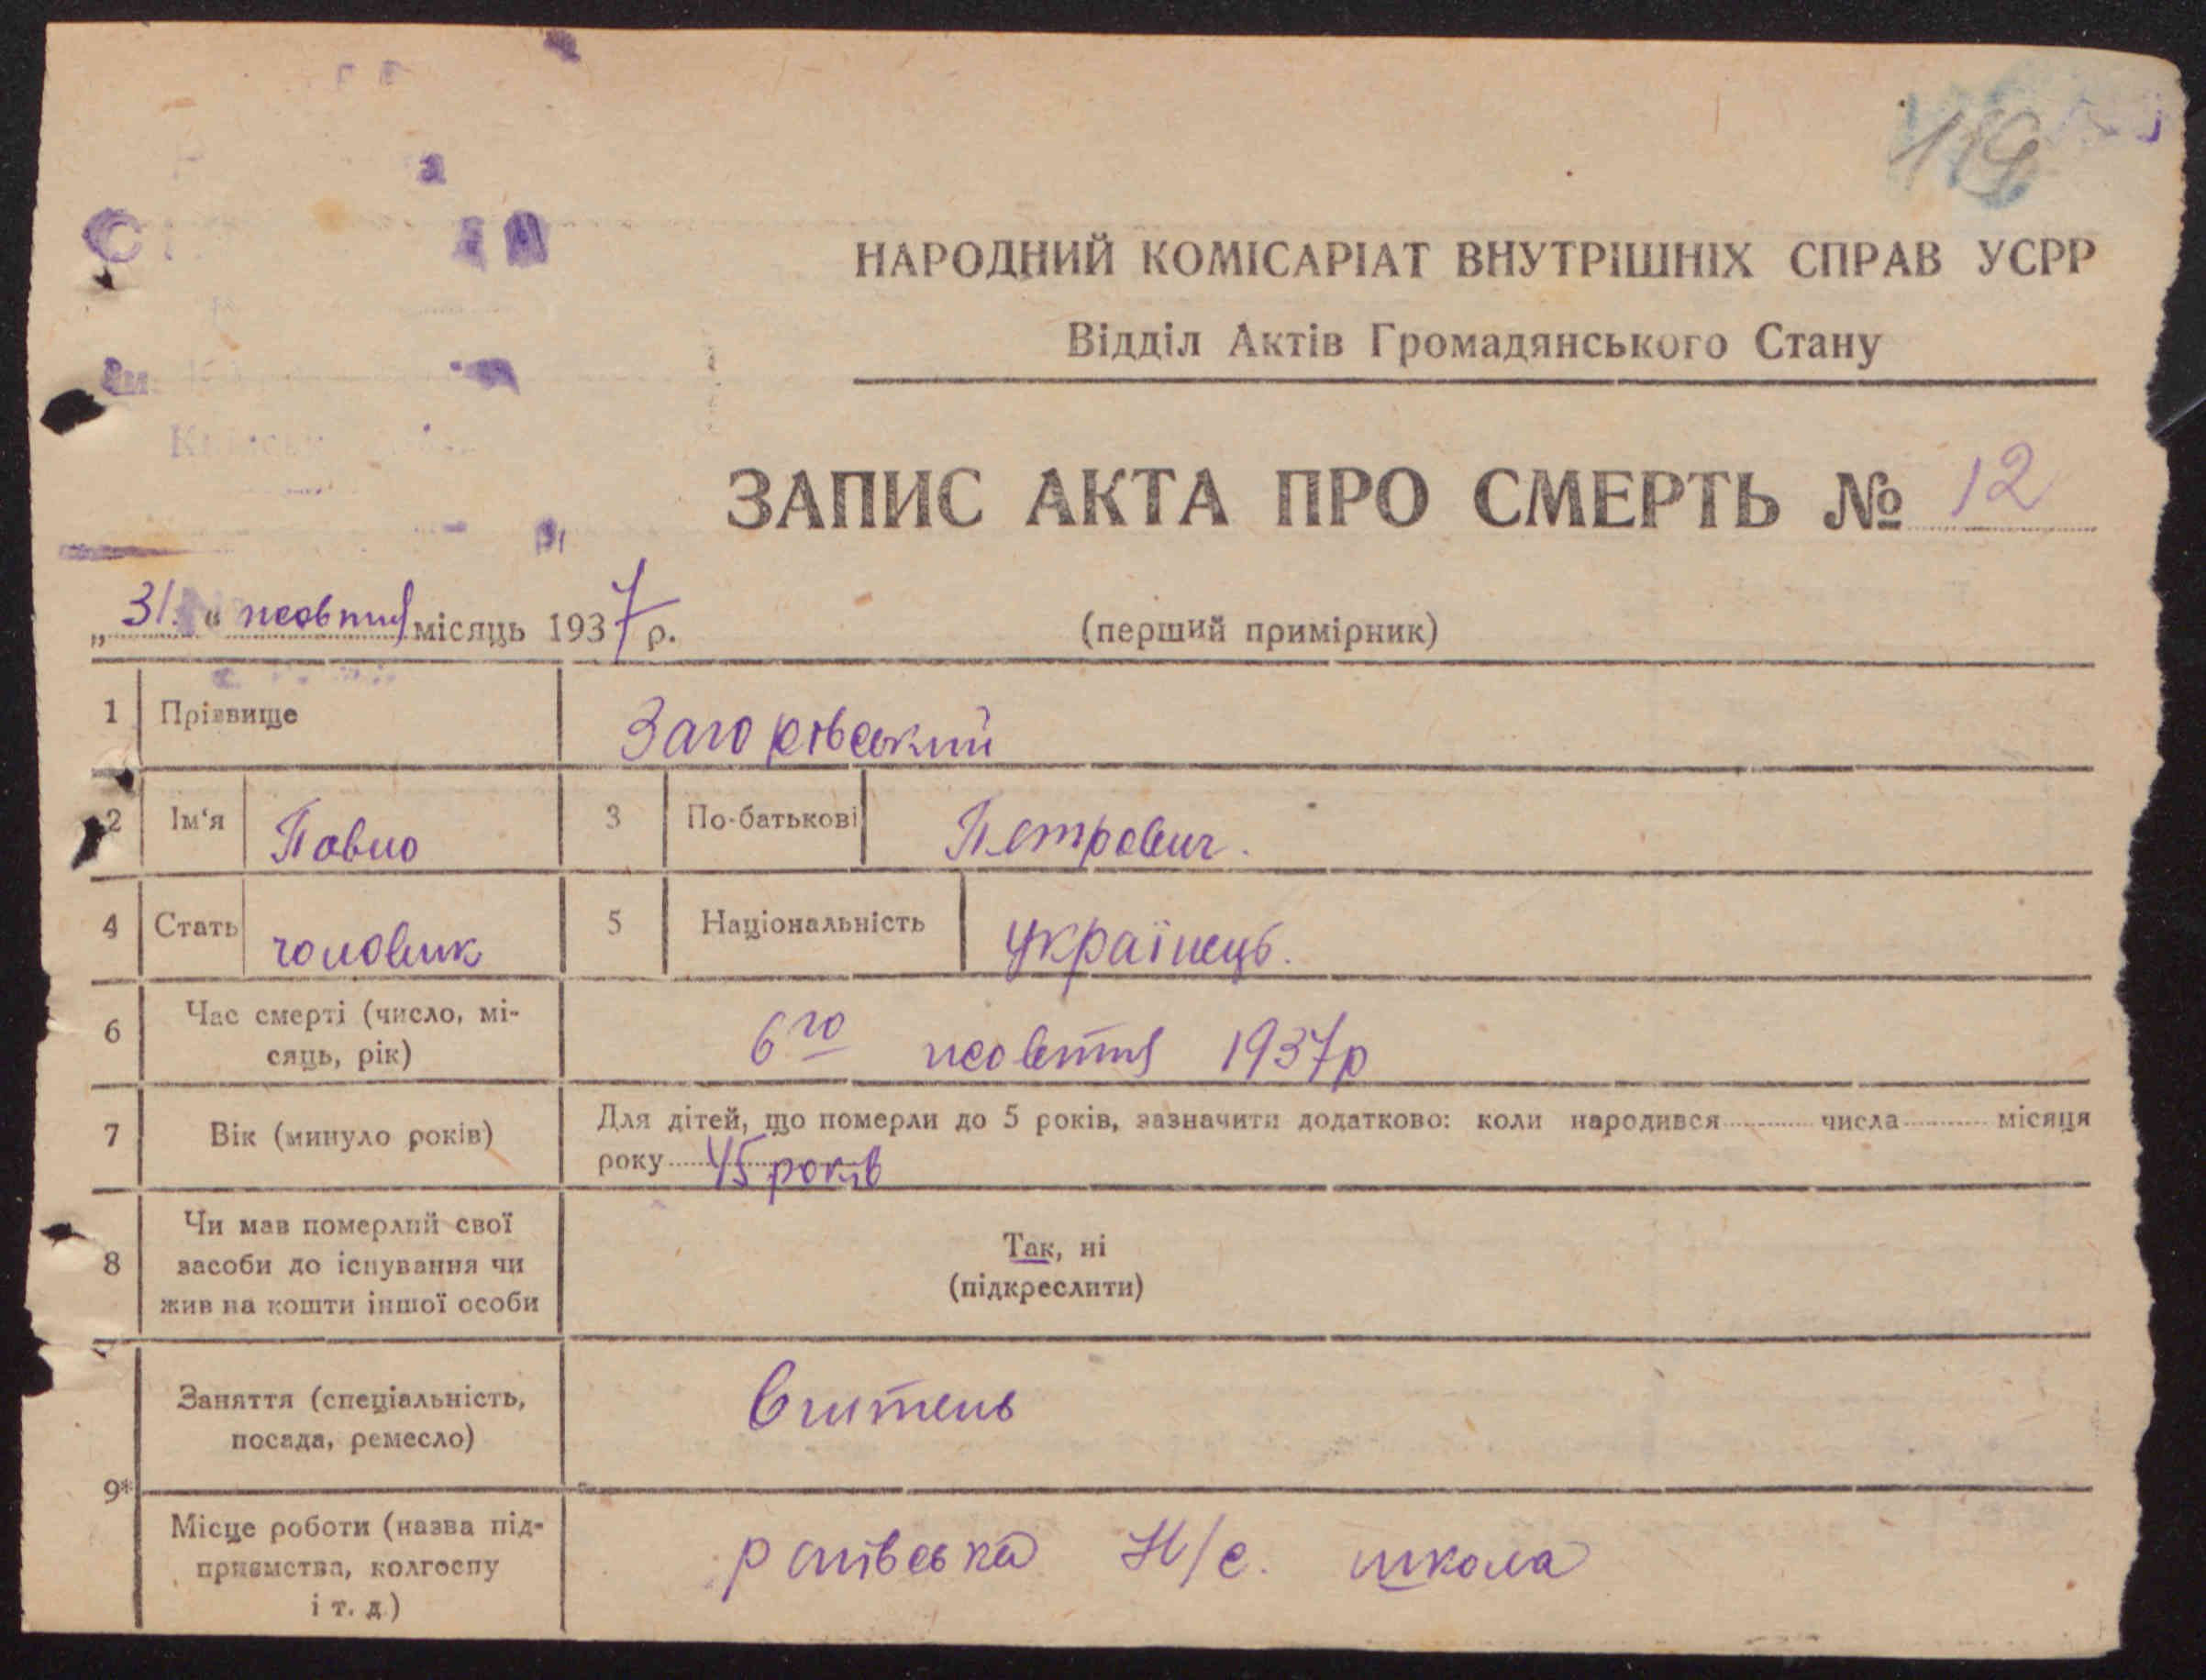 119
НАРОДНИЙ КОМІСАРІАТ ВНУТРІШНІХ СПРАВ УСРР
Відділ Актів Громадянського Стану
ЗАПИС АКТА ПРО СМЕРТЬ № 12
„31“ жовтня місяць 1937 р.
(перший примірник)
1 Прізвище Загорівський
2 Ім‘я Павло 3 По-батькові Петрович.
4 Стать чоловик 5 Національність українець.
6 Час смерті (число, мі-
сяць, рік) 6го жовтня 1937р
7 Вік (минуло років) Для дітей, що померли до 5 років, зазначити додатково: коли народився числа місяця
року 45 років
8 Чи мав померлий свої
засоби до існування чи
жив на кошти іншої особи
Так, ні
(підкреслити)
Заняття (спеціальність,
посада, ремесло) Вчитель
9*
Місце роботи (назва під-
приємства, колгоспу
і т. д.)
Н/с. школа